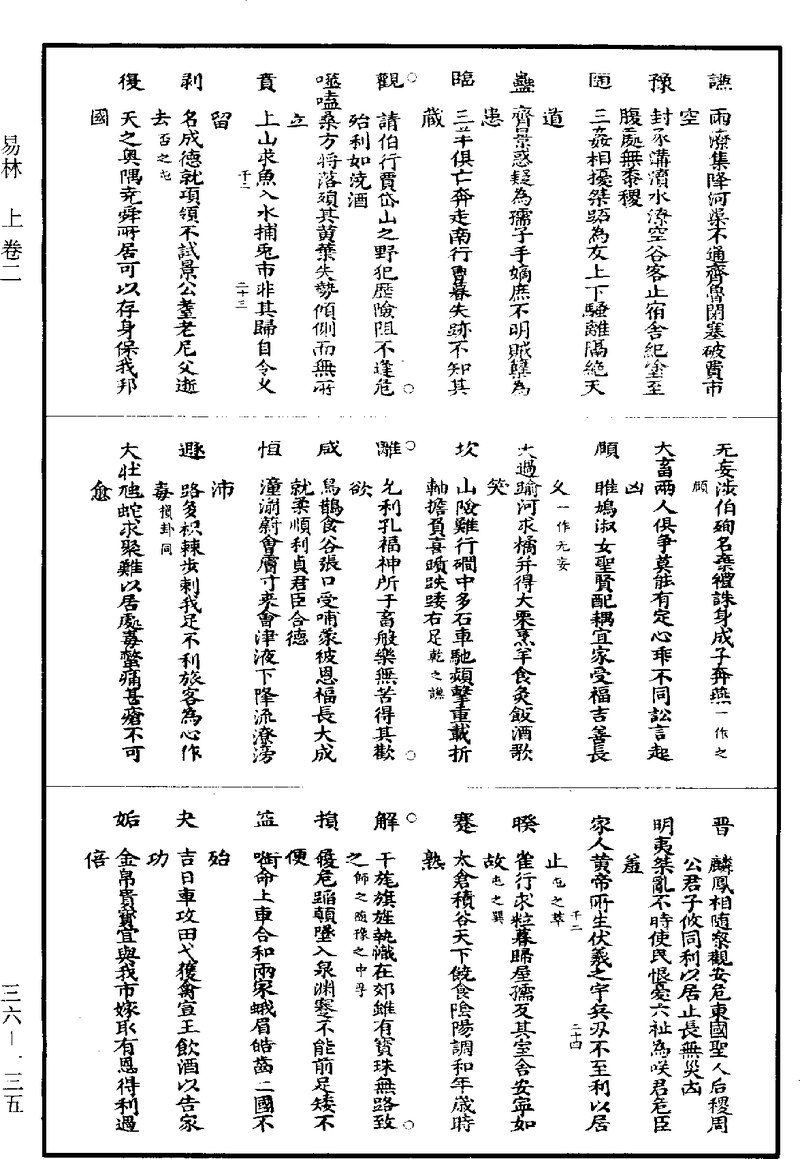 謙 雨潦集降河渠不通齊魯閉塞破費市
空
豫 封豕溝瀆水潦空谷客止宿舍紀塗至
腹處無黍稷
隨 三姦相擾桀跖為友上下騷離隔絶天
道
蠱 齊景惑疑為孺子手嫡庶不明賊孽為
患
臨 三羊俱亡奔走南行會暮失跡不知其
藏
觀 請伯行賈岱山之野犯歷險阻不逢危
殆利如澆酒
噬嗑 桑方將落隕其黄葉失勢傾側而無所
立
賁 上山求魚入水捕兎市非其歸自令火
留
剥 名成德就項領不試景公耋老尼父逝
去否之屯
復 天之奥隅尭舜所居可以存身保我邦
國
无妄 涉伯殉名棄禮誅身成子奔燕一作之
頤
大畜 兩人俱争莫能有定心乖不同訟言起
凶
頤 睢鳩淑女聖賢配耦宜家受福吉善長
久一作无妄
大過 踰河求橘并得大栗烹羊食炙飯酒歌
笑
坎 山險難行磵中多石車馳䡾擊重載折
軸擔負喜躓跌踒右足乾之謙
離 允利孔福神所子畜般樂無苦得其歡
欲
咸 鳥鵲食谷張口受哺蒙彼恩福長大成
就柔順利貞君臣合德
恒 潼滃蔚薈膚寸来會津液下降流潦滂
沛
遯 路多枳棘步刺我足不利旅客為心作
毒損卦同
大壯 虺蛇求聚難以居處毒螫痛甚瘡不可
愈
晋 麟鳳相随察觀安危東國聖人后稷周
公君子攸同利以居止長無災凶
明夷 桀亂不時使民恨憂六祉為咲君危臣
羞
家人 黄帝所生伏羲之宇兵刃不至利以居
止屯之萃
睽 雀行求粒暮歸屋孺反其室舍安寧如
故屯之巽
蹇 太倉積谷天下饒食陰陽調和年歳時
熟
解 干旄旗旌執幟在郊雖有寳珠無路致
之師之随豫之中孚
損 履危蹈顛墜入泉淵蹇不能前足矮不
便
益 銜命上車合和兩家蛾眉皓齒二國不
殆
夬 吉日車攻田弋獲禽宣王飲酒以告家
功
姤 金帛貴寳宜與我市嫁取有恩得利過
倍
易林 上卷二
三六—一三五
千二
二十三
千二
二十四